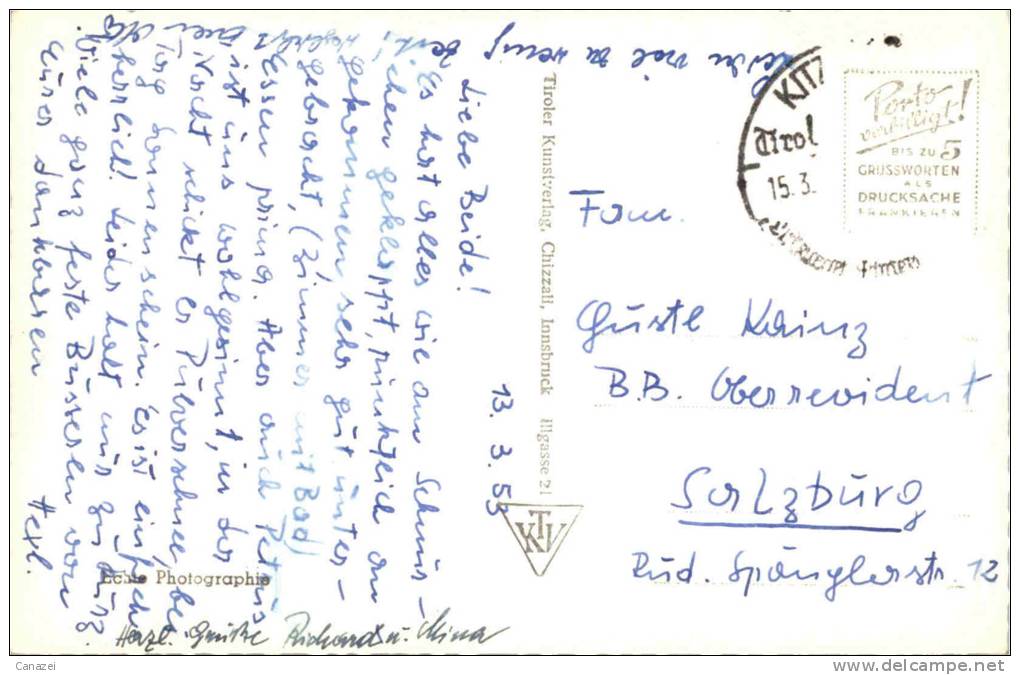 13. 3. 53
Liebe Beide!
Es hat alles wie am Schnür-
chen geklappt, pünktlich an
gekommen, sehr gut unter-
gebracht, (Zimmer mit Bad)
Essen prima. Aber auch Petrus
ist uns wohlgesinnt, in der
Nacht schickt er Pulverschnee, bei
Tag Sonnenschein. Es ist einfach
herrlich! Leider halt nur zu kurz
Viele ganz feste Busserln von
Eurer dankbaren
Hexl.
leider viel zu wenig
Herzl. Grüße Richard u. Mina
Echte Photographie
Tiroler Kunstverlag, Chizzali, Innsbruck Illgasse 21
KTV
KITZ
Tirol
15. 3.
Porto
verbilligt!
BIS ZU 5
GRUSSWORTEN
ALS
DRUCKSACHE
FRANKIEREN
Fam.
Gustl Kainz
B.B. Oberrevident
Salzburg
Rud. Spänglerstr. 12
Canazei
www.delcampe.net